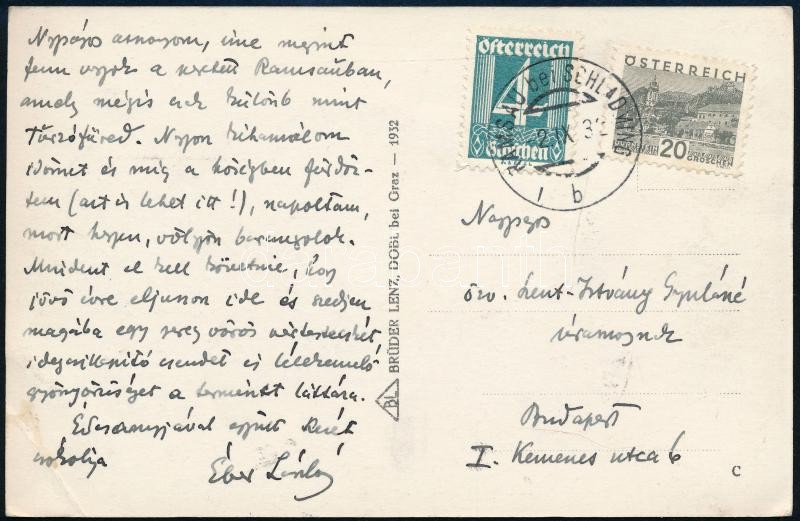 Nagyságos asszonyom, íme megint
fenn vagyok a szeretett Ramsauban,
amely mégis csak különb mint
Nagyon kihasználom
időmet és míg a községben fürdöt-
tem (azt is lehet itt!), napoztam,
most hegyen, völgyön barangolok.
Mindent el kell követnie, hogy
jövő évre eljusson ide és szedjen
magába egy sereg vörös vértestecskét,
idegcsillapító csendet és lélekemelő
gyönyörűséget a természet láttára.
Édesanyjával együtt kezét
csókolja
Éber László
BL
BRÜDER LENZ, DOBL bei Graz — 1932
Österreich
4
Groschen
ÖSTERREICH
20
GROSCHEN
RAMSAU bei SCHLADMING
2 IX 32
1 b
Nagysgos
özv. Szent-Istvány Gyuláné
úrasszonynak
Budapest
I. Kemenes utca 6
C